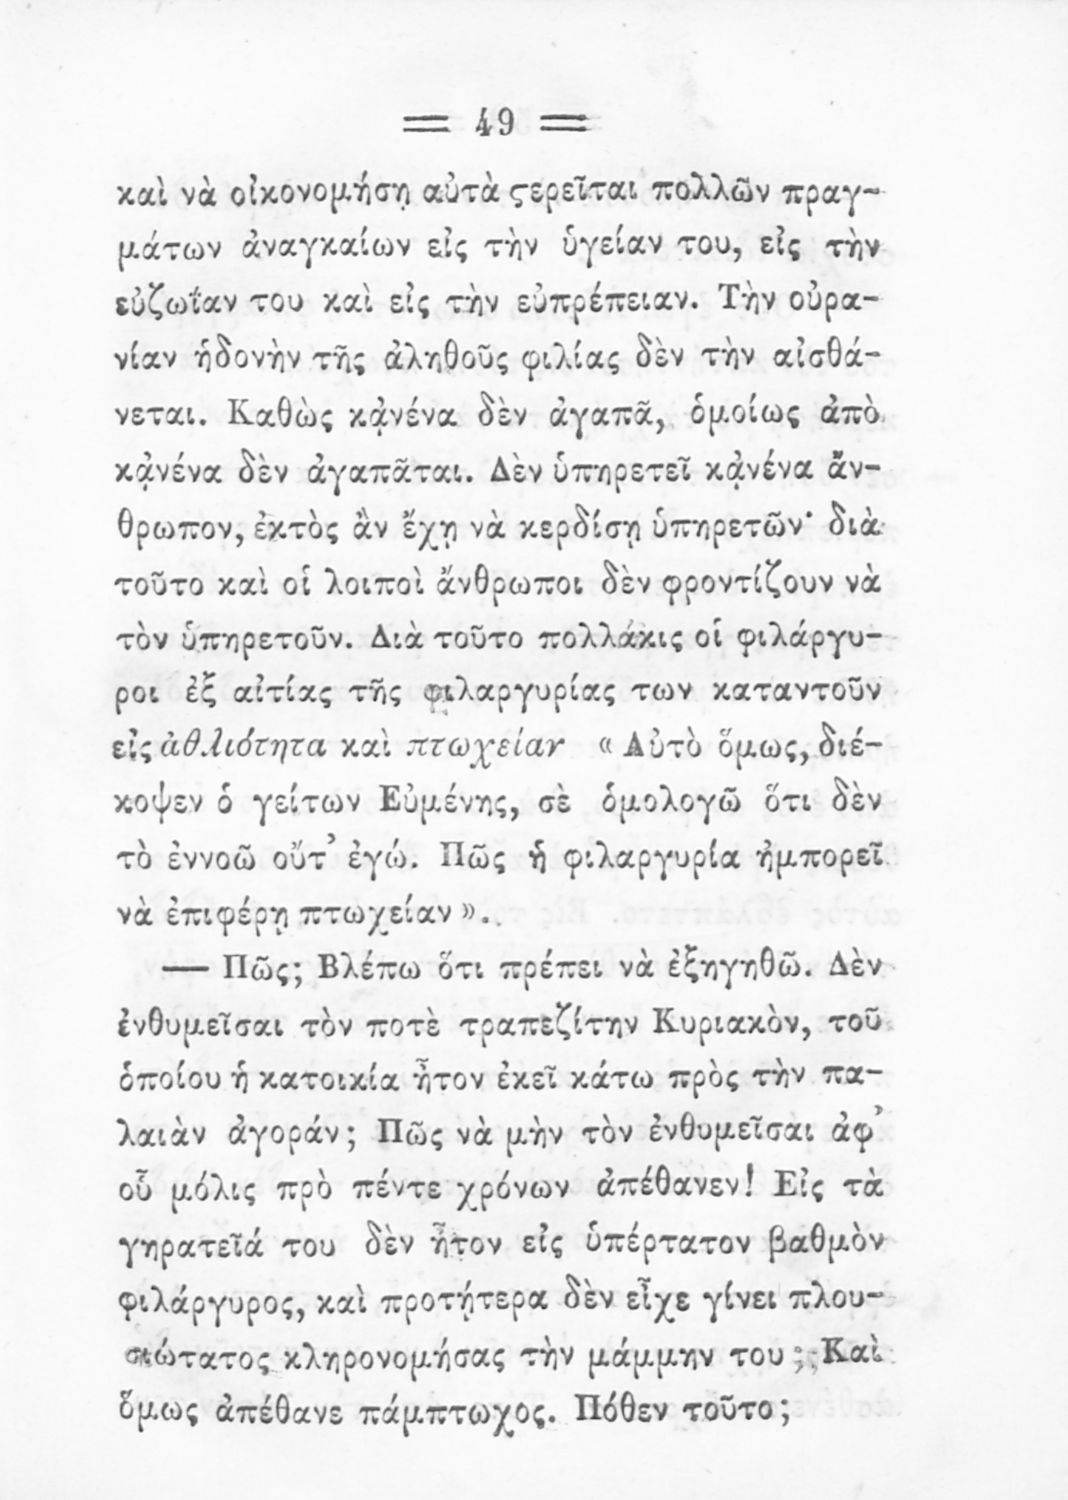 = 49 =
καὶ νὰ οἰκονομήσῃ αὐτὰ ϛερεῖται πολλῶν πραγ-
μάτων ἀναγκαίων εἰς τὴν ὑγείαν του, εἰς τὴν
εὐζωΐαν του καὶ εἰς τὴν εὐπρέπειαν. Τὴν οὐρα-
νίαν ἡδονὴν τῆς ἀληθοῦς φιλίας δὲν τὴν αἰσθά-
νεται. Καθὼς κᾀνένα δὲν ἀγαπᾶ, ὁμοίως ἀπὸ
κᾀνένα δὲν ἀγαπᾶται. Δὲν ὑπηρετεῖ κᾀνένα ἄν-
θρωπον, ἐκτὸς ἂν ἔχῃ νὰ κερδίσῃ ὑπηρετῶν· διὰ
τοῦτο καὶ οἱ λοιποὶ ἄνθρωποι δὲν φροντίζουν νὰ
τὸν ὑπηρετοῦν. Διὰ τοῦτο πολλάκις οἱ φιλάργυ-
ροι ἐξ αἰτίας τῆς φιλαργυρίας των καταντοῦν
εἰς ἀθλιότητα καὶ πτωχείαν « Αὐτὸ ὅμως, διέ-
κοψεν ὁ γείτων Εὐμένης, σὲ ὁμολογῶ ὅτι δὲν
τὸ ἐννοῶ οὔτ᾽ ἐγώ. Πῶς ἡ φιλαργυρία ἠμπορεῖ
νὰ ἐπιφέρῃ πτωχείαν ».
— Πῶς; Βλέπω ὅτι πρέπει νὰ ἐξηγηθῶ. Δὲν
ἐνθυμεῖσαι τὸν ποτὲ τραπεζίτην Κυριακὸν, τοῦ
ὁποίου ἡ κατοικία ἦτον ἐκεῖ κάτω πρὸς τὴν πα-
λαιὰν ἀγοράν; Πῶς νὰ μὴν τὸν ἐνθυμεῖσαι ἀφ᾽
οὗ μόλις πρὸ πέντε χρόνων ἀπέθανεν! Εἰς τὰ
γηρατεῖά του δὲν ἦτον εἰς ὑπέρτατον βαθμὸν
φιλάργυρος, καὶ προτῄτερα δὲν εἶχε γίνει πλου-
σιώτατος κληρονομήσας τὴν μάμμην του; Καὶ
ὅμως ἀπέθανε πάμπτωχος. Πόθεν τοῦτο;